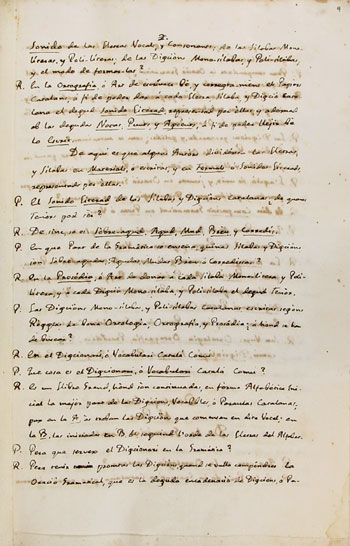 2.
Sonido de las Lletras Vocals, y Consonants; de las Sílabas Mono-
literas, y Poli-literas; de las Diccións Mono-sílabas, y Poli-sílabas,
y, el modo de formarlas?
R. En la Ortografía, ó Art de escriurer bè, y correctament el
Catalana, á fi de poder dar á cada Lletra, Sílaba, y Dicció Cata-
lana el degut Sonido Literal, representat per ellas, y ademés
ab las degudas Notas, Punts, y á fi de poder llegir bé
lo Escrit.
De aquí es que alguns Autors divideixen las Lletras,
y Sílabas en Material, ó escritas, y en Formal ó Sonidos Literals,
representats per ellas.
P. El Sonido Literal de las Sílabas, y Diccións Catalanas, de quants
Tenors pot ser?
R. De sinc, so es: Sobre-agut, Agut, Mud, Breu, y
P. En que Part de la Gramática se ensenya quinas Sílabas y Diccións
son Sobre-agudas; Agudas, Mudas, Breus, ó
R. En la Prosodia, ó Art de donar á cada Sílaba Monolitera, y Poli-
litera, y á cada Dicció Mono-sílaba, y Polisílaba el degut Tenor.
P. Las Diccións Mono-sílabas, y Polisílabas Catalanas escritas segons
Réglas de Bona Ortología, Ortografía, y Prosodia; á hont se han
de buscar?
R. En el Diccionari, ó Vocabulari Catalá Comú.
P. Que cosa es el Diccionari, ó Vocabulari Catalá Comú?
R. Es un Llibre Gran, hont son continuada, en forma Alfabética
la major part de las Diccións, Vocables, ó Paraulas Catalanas,
per en la A, es troban las Diccións que comensan en dita Vocal: en
la B, las iniciadas en B. et seguint l'orde de las Lletras del Alfabet.
P. Pera que serveix el Diccionari en la Gramática?
R. Pera las Diccións, quant se vulla compóndrer la
Oració Gramatical, que es la deguda encadenació de Diccións, ó Pa-